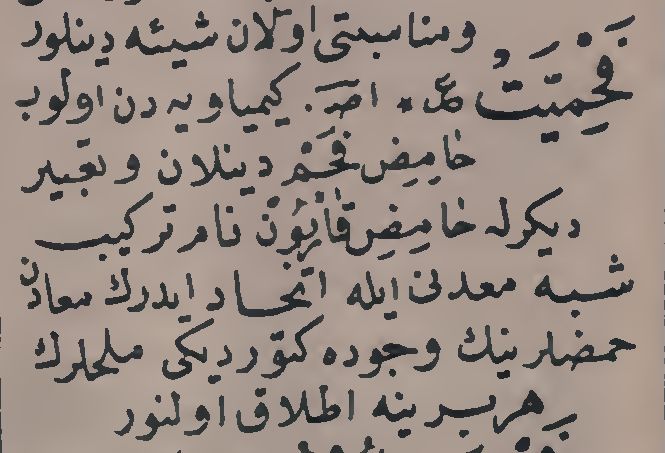 ومناسبتی اولان شیئه دینلور
فَحْمِیَّتْ ع * اص. کیمیاویه دن اولوب
حَامِضِ فَحْم دینلان و تعبیر
دیکرله حَامِضِ قَارْبُون نام ترکیب
شبه معدنی ایله اتحاد ایدرك معادن
حمضلرینك وجوده کتوردیکی ملحلرك
هر برینه اطلاق اولنور